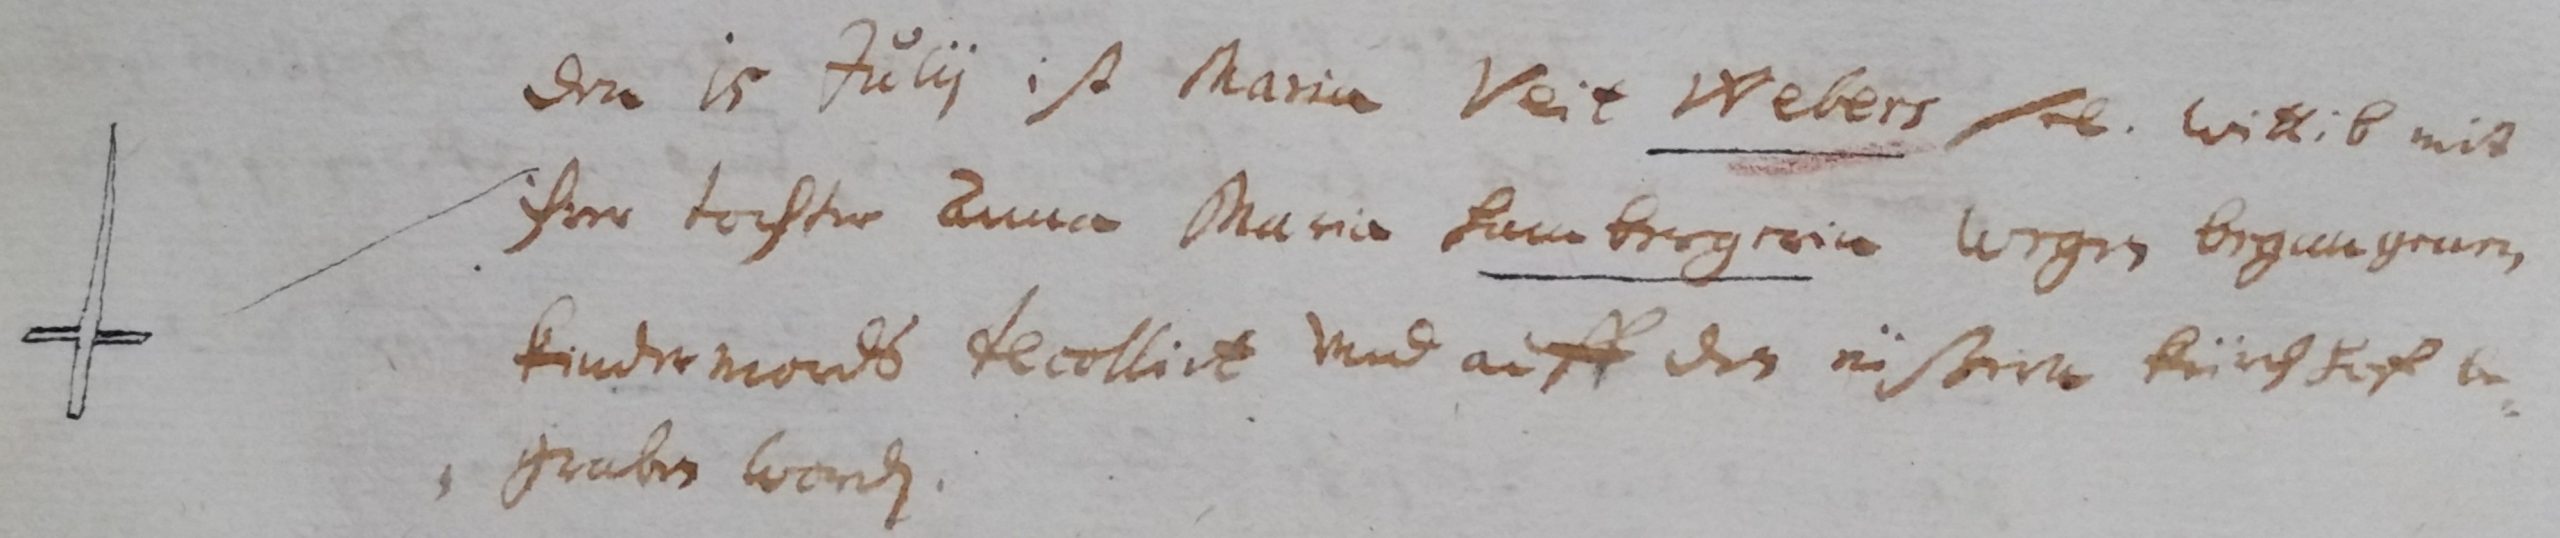 Den 15 Julij ist Maria Veit Webers sel. Wittib mit
ihrer tochter Anna Maria Hambergerin wegen begangenen
kindermords decollirt und auff den eüßern kürchhoff be¬
graben word.